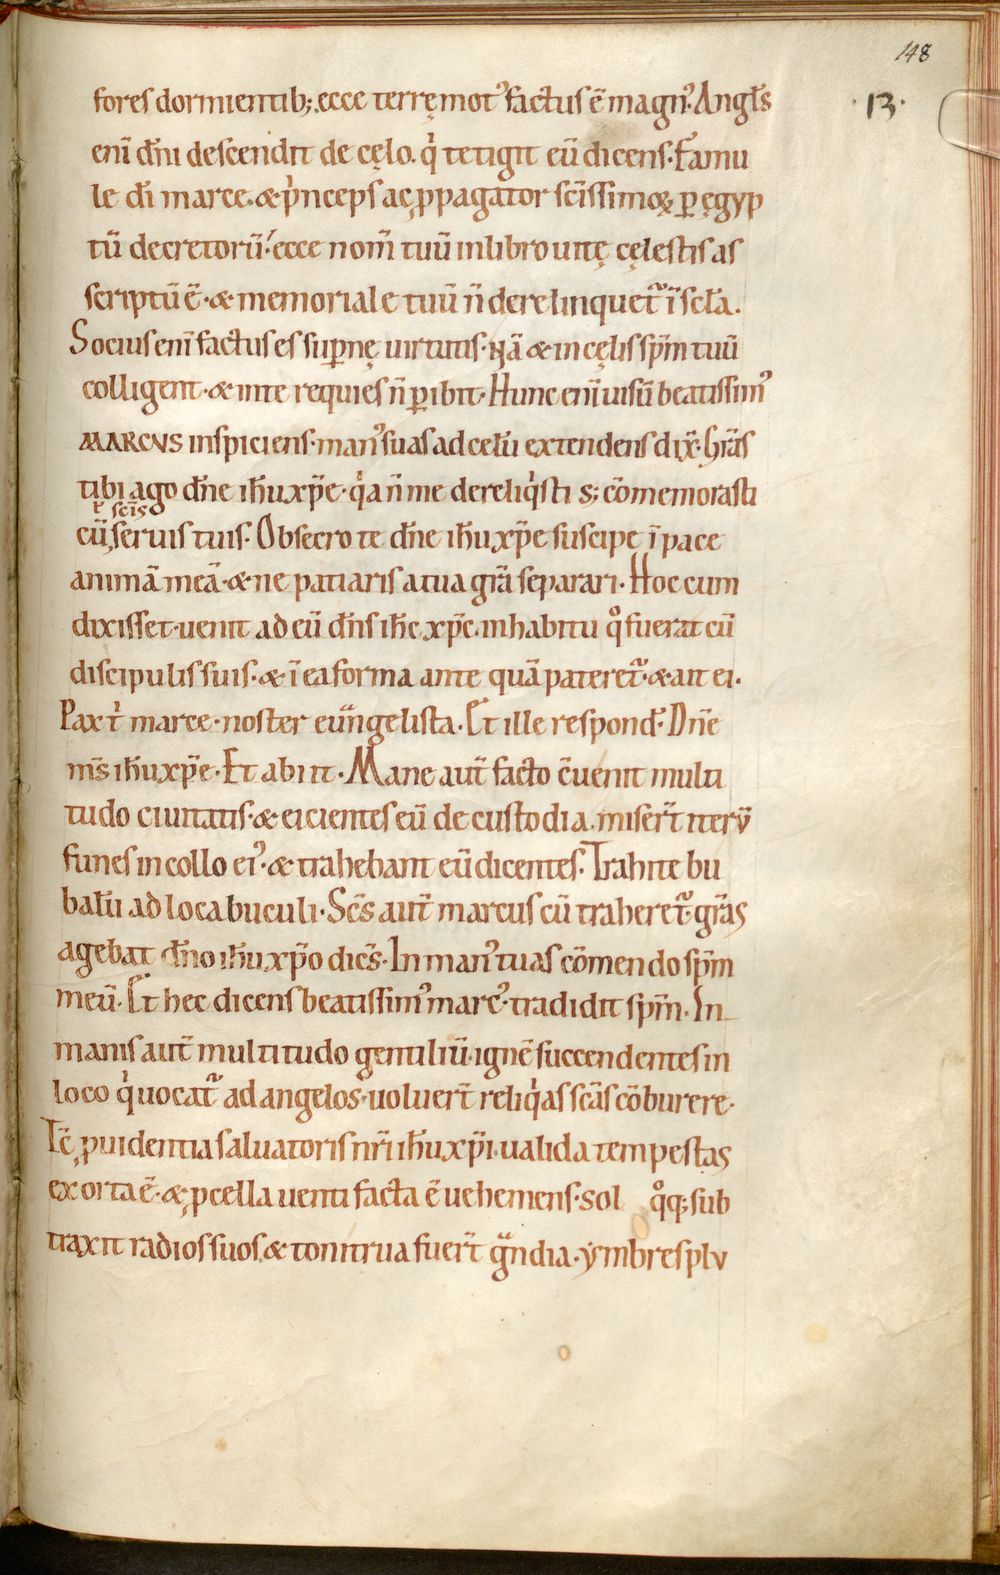 148
·13·
fores dormientib;. ecce terręmot᾽ factus ē magn᾽. Angl̄s
enī dn̄i descendit de cęlo. qͥ tetigit eū dicens. Famu
le dī marce. & pͥnceps ac ꝓpagator scīssimoꝝ ꝑ ęgyp
tū decretorū. ecce nom̄ tuū in libro uitę cęlestis as
scriptū ē. & memoriale tuū n̄ derelinquet᷑ ī scl̄a.
Socius enī factus es suꝑnę uirtutis. Nā & in cęlis sp̄m tuū
colligent. & in te requies n̄ ꝑibit. Hunc enī uisū beatissim᾽
MARCVS inspiciens. man᾽ suas ad celū extendens dix̄. Gr̄as
tibi ago dn̄e ih̄u xp̄e. qͥa n̄ me dereliqͥsti s; cōmemorasti
ł scīs
cū seruis tuis. Obsecro te dn̄e ih̄u xp̄e suscipe ī pace
animā meā. & ne patiaris a tua gr̄a separari. Hoc cum
dixisset. uenit ad eū dn̄s ih̄c xp̄c. in habitu qͦ fuerat cū
discipulis suis. & ī ea forma ante quā pateret᷑. & ait ei.
Pax tͥ marce. noster euu̅ngelista. Et ille respond̄. Dn̄e
m̄s ih̄u xp̄e. Et abiit. Mane aut̄ facto c̄uenit multi
tudo ciuitatis. & eicientes eū de custodia. miser̄t iterū
funes in collo ei᾽. & trahebant eū dicentes. Trahite bu
balū ad loca buculi. Sc̄s aut̄ marcus cū traheret᷑. gr̄as
agebat dn̄o ih̄u xp̄o dic̄s. In man᾽ tuas cōmendo sp̄m
meū. Et hec dicens beatissim᾽ marc᾽. tradidit sp̄m. In
manis aut̄ multitudo gentiliū. ignē succendentes in
loco qͥ uocat᷑ ad angelos. uoluer̄t reliqͥas scās cōburere.
Tc̄ ꝓuidentia saluatoris nr̄i ih̄u xp̄i. ualida tempestas
exorta ē. & ꝓcella uenti facta ē uehemens. sol qͦq; sub
traxit radios suos. & tonitrua fuer̄t gͣndia. ymbres plu